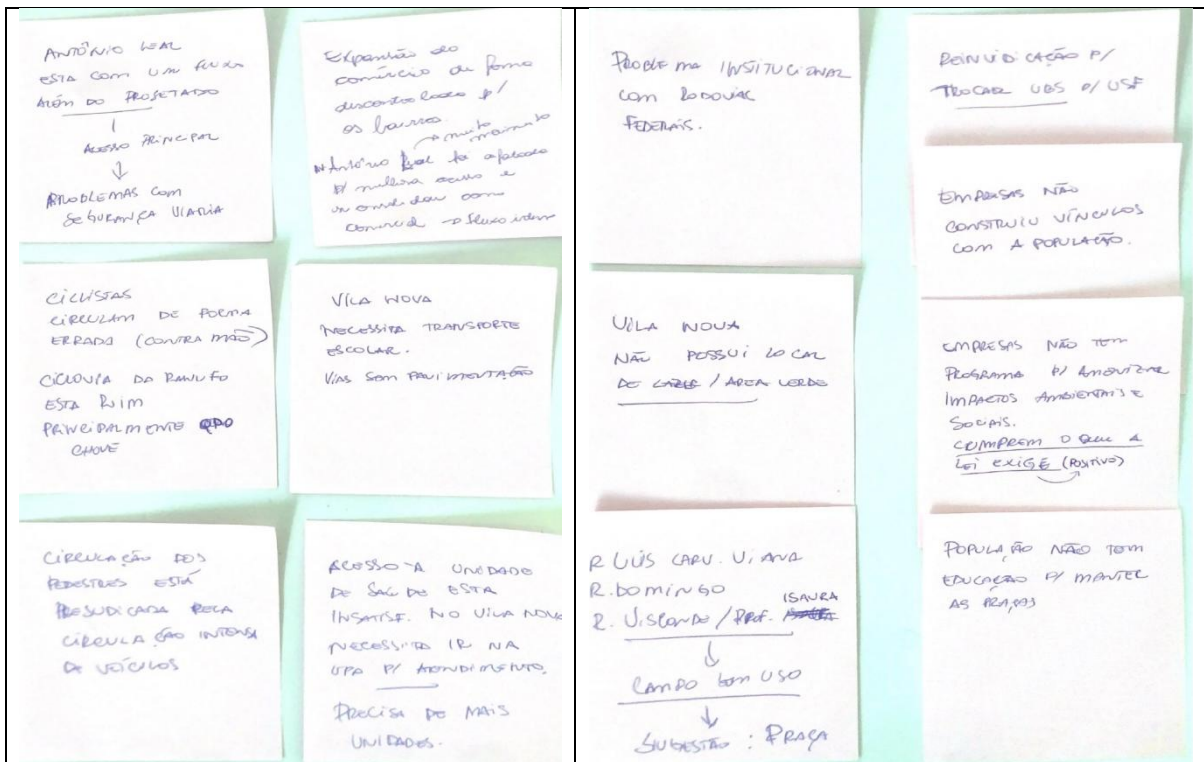 ANTÔNIO LEAL
ESTA COM UM FLUXO
ALÉM DO PROJETADO
ACESSO PRINCIPAL
PROBLEMAS COM
SEGURANÇA VIARIA
Expansão do
comércio de forma
os bairros
muito
Antônio Leal foi
melhora acesso e
com
comercial → fluxo intenso
CICLISTAS
CIRCULAM DE FORMA
ERRADA (CONTRA MÃO)
CICLOVIA DA RANULFO
ESTA RUIM
PRINCIPALMENTE QDO
CHOVE
VILA NOVA
NECESSITA TRANSPORTE
ESCOLAR.
VIAS SEM PAVIMENTAÇÃO
CIRCULAÇÃO DOS
PEDESTRES ESTÁ
PREJUDICADA PELA
CIRCULAÇÃO INTENSA
DE VEÍCULOS
ACESSO A UNIDADE
DE SAÚDE ESTA
INSATISF. NO VILA NOVA
NECESSITA IR NA
UPA P/ ATENDIMENTO.
PRECISA DE MAIS
UNIDADES.
PROBLEMA INSTITUCIONAL
COM RODOVIAS
FEDERAIS.
VILA NOVA
NÃO POSSUI LOCAL
DE LAZER / AREA VERDE
R LUÍS CARV. VIANA
R. DOMINGO
R. VISCONDE / PROF. ISAURA
CAMPO SEM USO
SUGESTÃO : PRAÇA
REINVIDICAÇÃO P/
TROCAR UBS P/ USF
EMPRESAS NÃO
CONSTRUIU VÍNCULOS
COM A POPULAÇÃO.
EMPRESAS NÃO TEM
PROGRAMA P/ AMENIZAR
IMPACTOS AMBIENTAIS E
SOCIAIS.
CUMPREM O QUE A
LEI EXIGE (POSITIVO)
POPULAÇÃO NÃO TEM
EDUCAÇÃO P/ MANTER
AS PRAÇAS